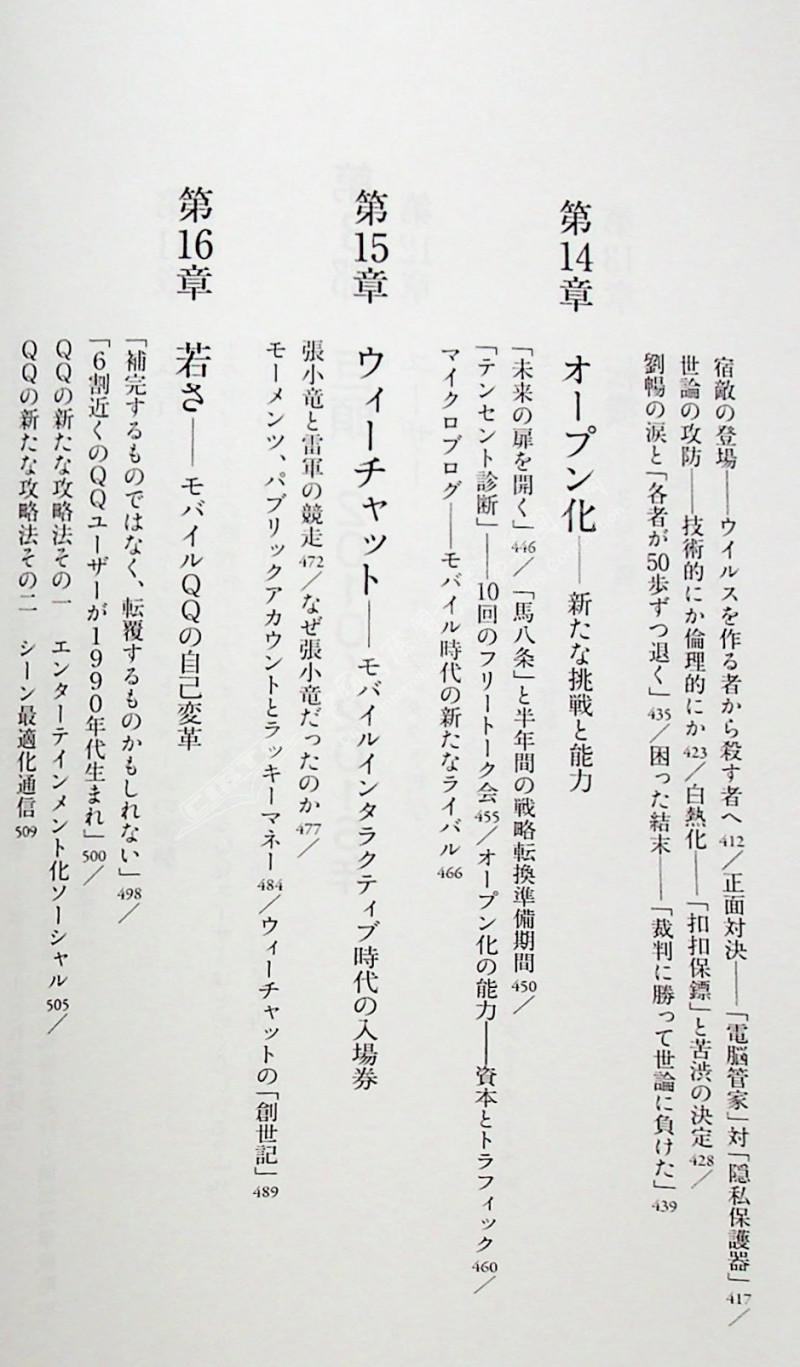 宿敵の登場――ウイルスを作る者から殺す者へ 412／正面対決――「電脳管家」対「隠私保護器」 417／
世論の攻防――技術的にか倫理的にか 423／白熱化――「扣扣保鏢」と苦渋の決定 428／
劉暢の涙と「各者が50歩ずつ退く」 435／困った結末――「裁判に勝って世論に負けた」 439
第14章 オープン化――新たな挑戦と能力
「未来の扉を開く」 446／「馬八条」と半年間の戦略転換準備期間 450／
「テンセント診断」――10回のフリートーク会 455／オープン化の能力――資本とトラフィック 460／
マイクロブログ――モバイル時代の新たなライバル 466
第15章 ウィーチャット――モバイルインタラクティブ時代の入場券
張小竜と雷軍の競走 472／なぜ張小竜だったのか 477／
モーメンツ、パブリックアカウントとラッキーマネー 484／ウィーチャットの「創世記」 489
第16章 若さ――モバイルQQの自己変革
「補完するものではなく、転覆するものかもしれない」 498／
「6割近くのQQユーザーが1990年代生まれ」 500／
QQの新たな攻略法その一 エンターテインメント化ソーシャル 505／
QQの新たな攻略法その二 シーン最適化通信 509